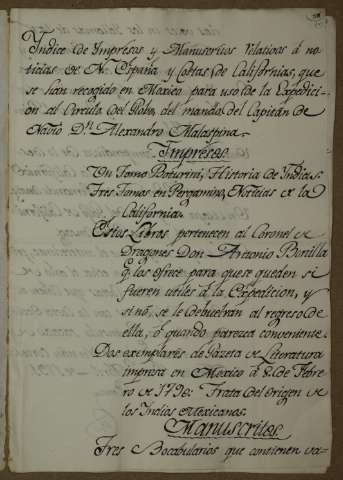 Yndice de Impresos y Manuscritos relativos á no-
ticias de N. España y Costas de Californias, que
se han recogido en Mexico para uso de la Expedici-
on al Circulo del Robo, del mando del Capitán de
Navio Dn. Alexandro Malaspina.
Impresos
Un Tomo Boturini, Historia de Indias.
Tres Tomos en Pergamino, Noticias de la
California.
Estos Libros pertenecen al Coronel de
Dragones Don Antonio Bonilla
q. los ofrece para que se queden si
fueren utiles á la Expedicion, y
si nó, se le debuelvan al regreso de
ella, ó quando parezca conveniente.
Dos exemplares de Gazeta de Literatura
impresa en Mexico á 8. de Febre-
ro de 1790: Trata del origen de
los Indios Mexicanos.
Manuscritos
Tres Bocabularios que contienen va-